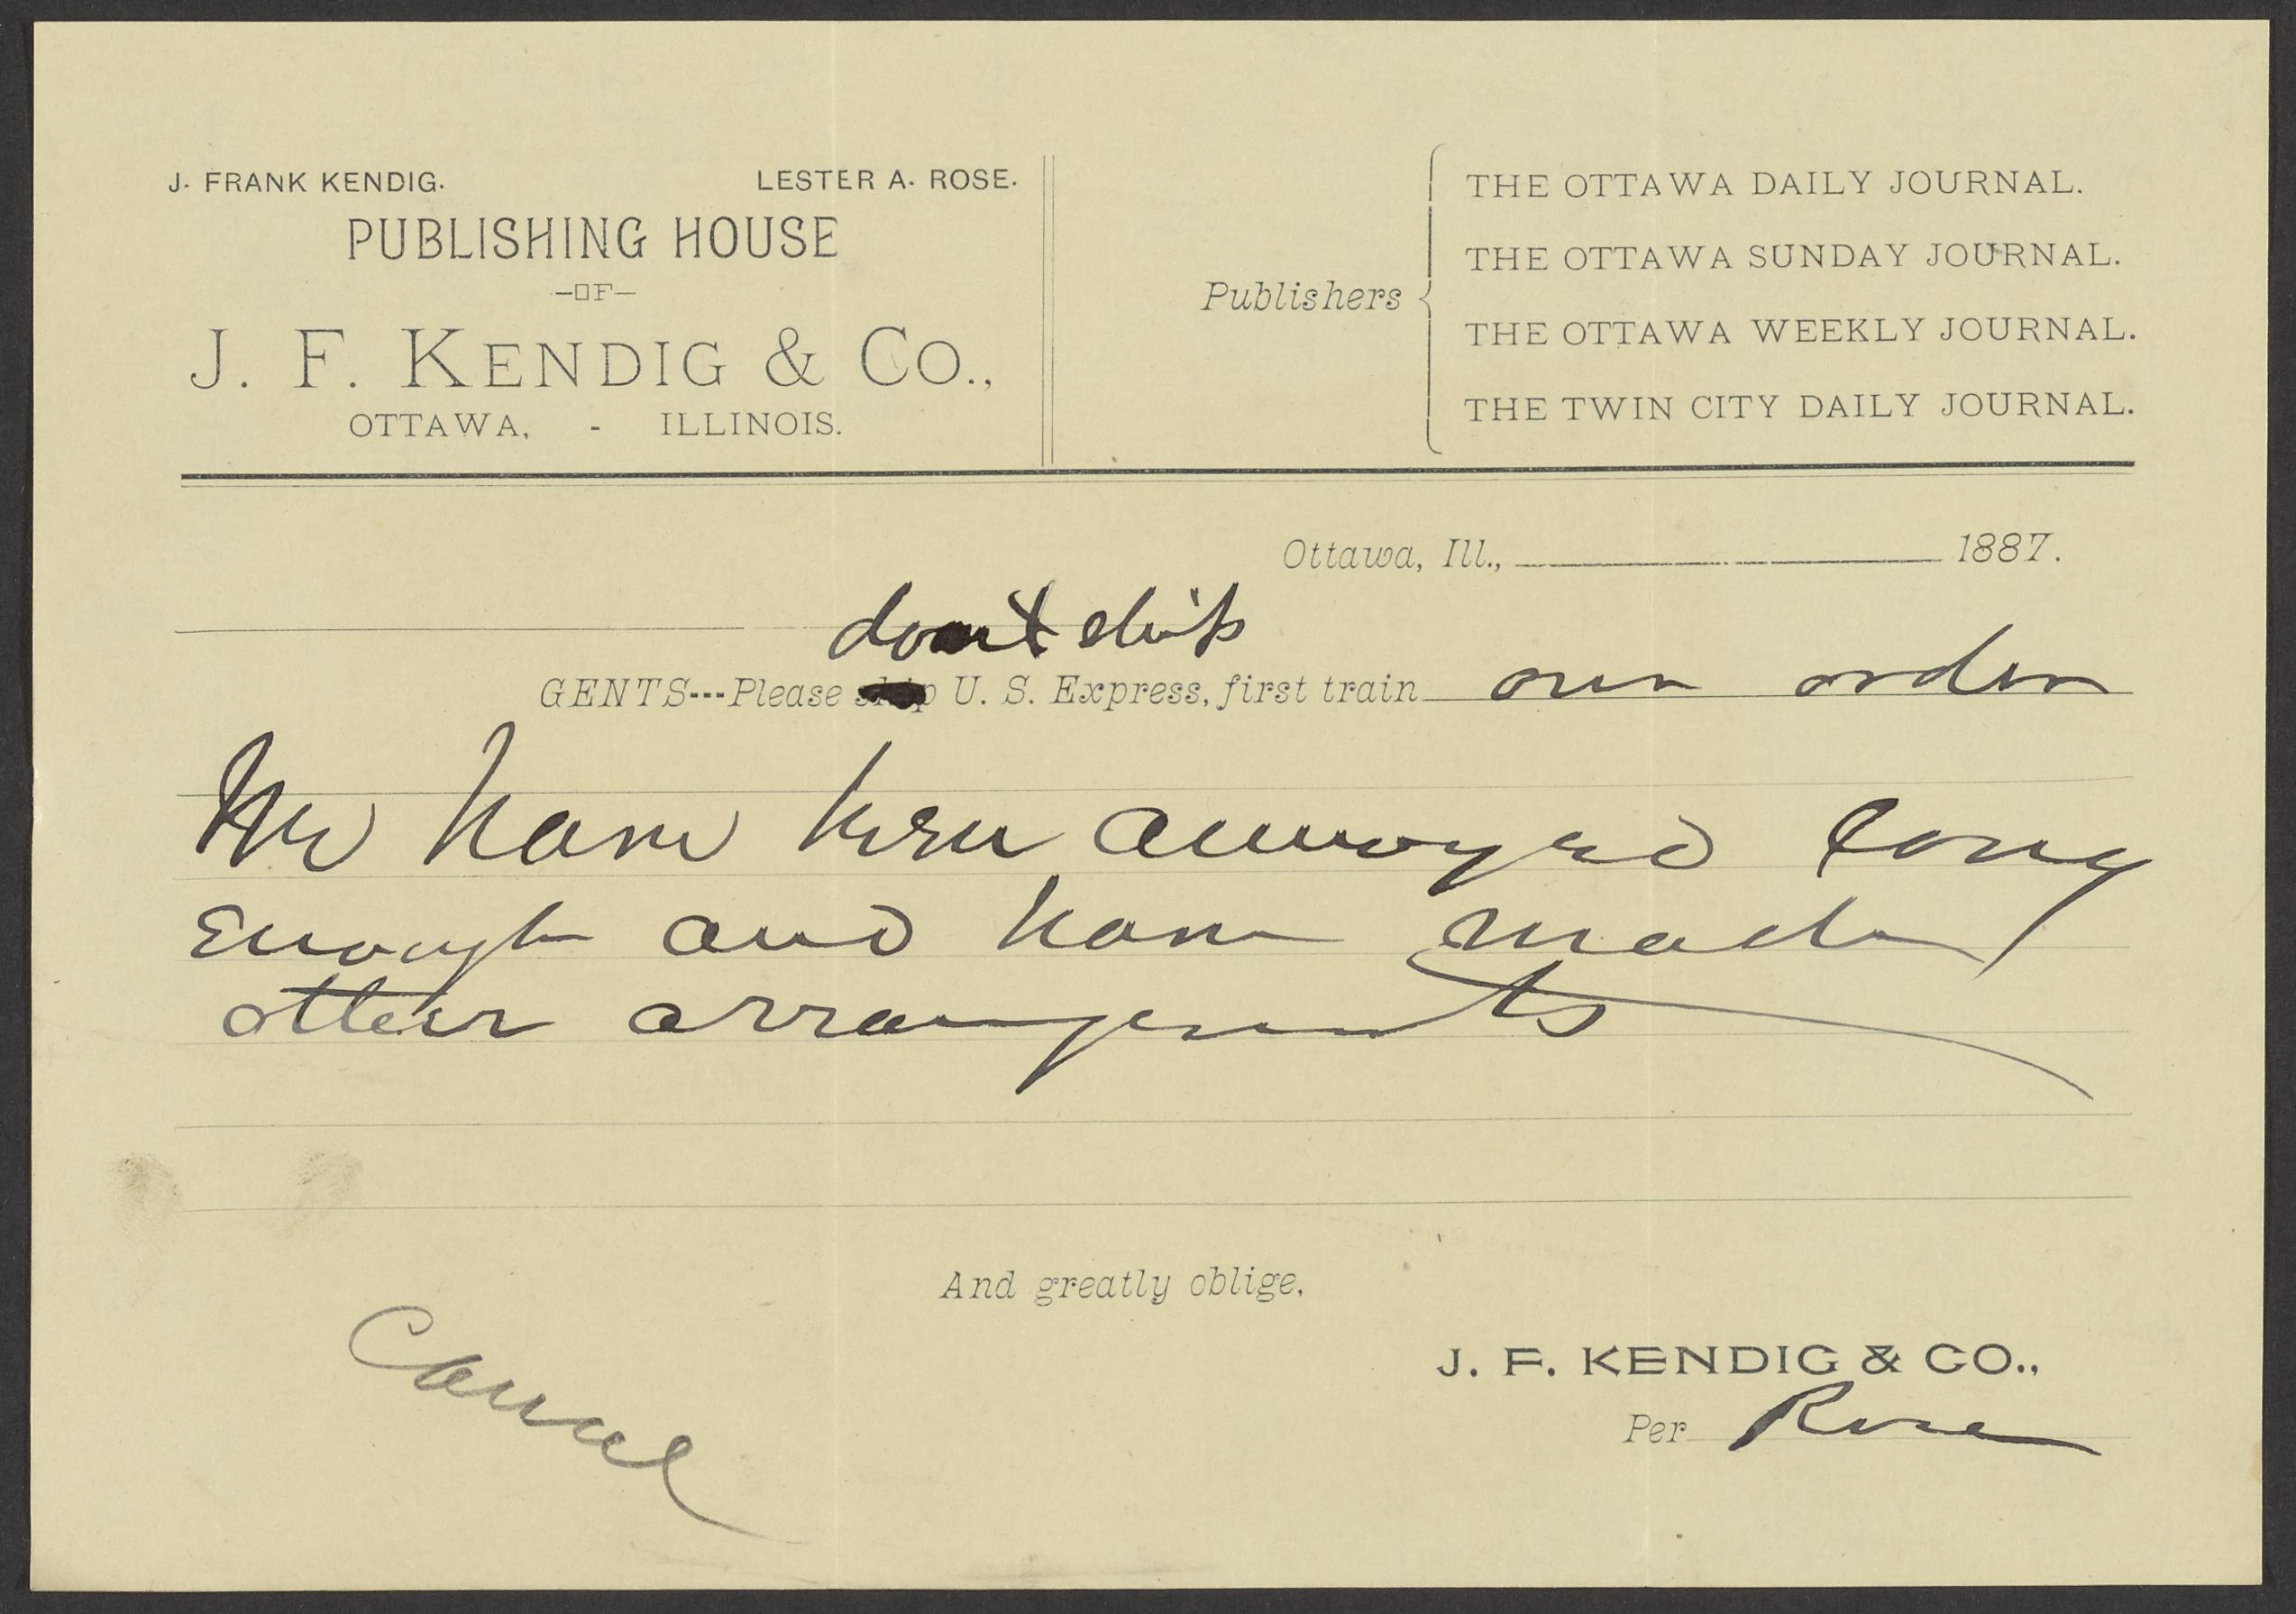 J. FRANK KENDIG. LESTER A. ROSE.
PUBLISHING HOUSE
-OF-
J. F. KENDIG & CO.,
OTTAWA, - ILLINOIS.
Publishers
THE OTTAWA DAILY JOURNAL.
THE OTTAWA SUNDAY JOURNAL.
THE OTTAWA WEEKLY JOURNAL.
THE TWIN CITY DAILY JOURNAL.
Ottawa, Ill., 1887.
dont ship
GENTS---Please ship U. S. Express, first train our order
We have been annoyed long
enough and have made
other arrangements
And greatly oblige,
J. F. KENDIG & CO.,
Per Rose
Cancel